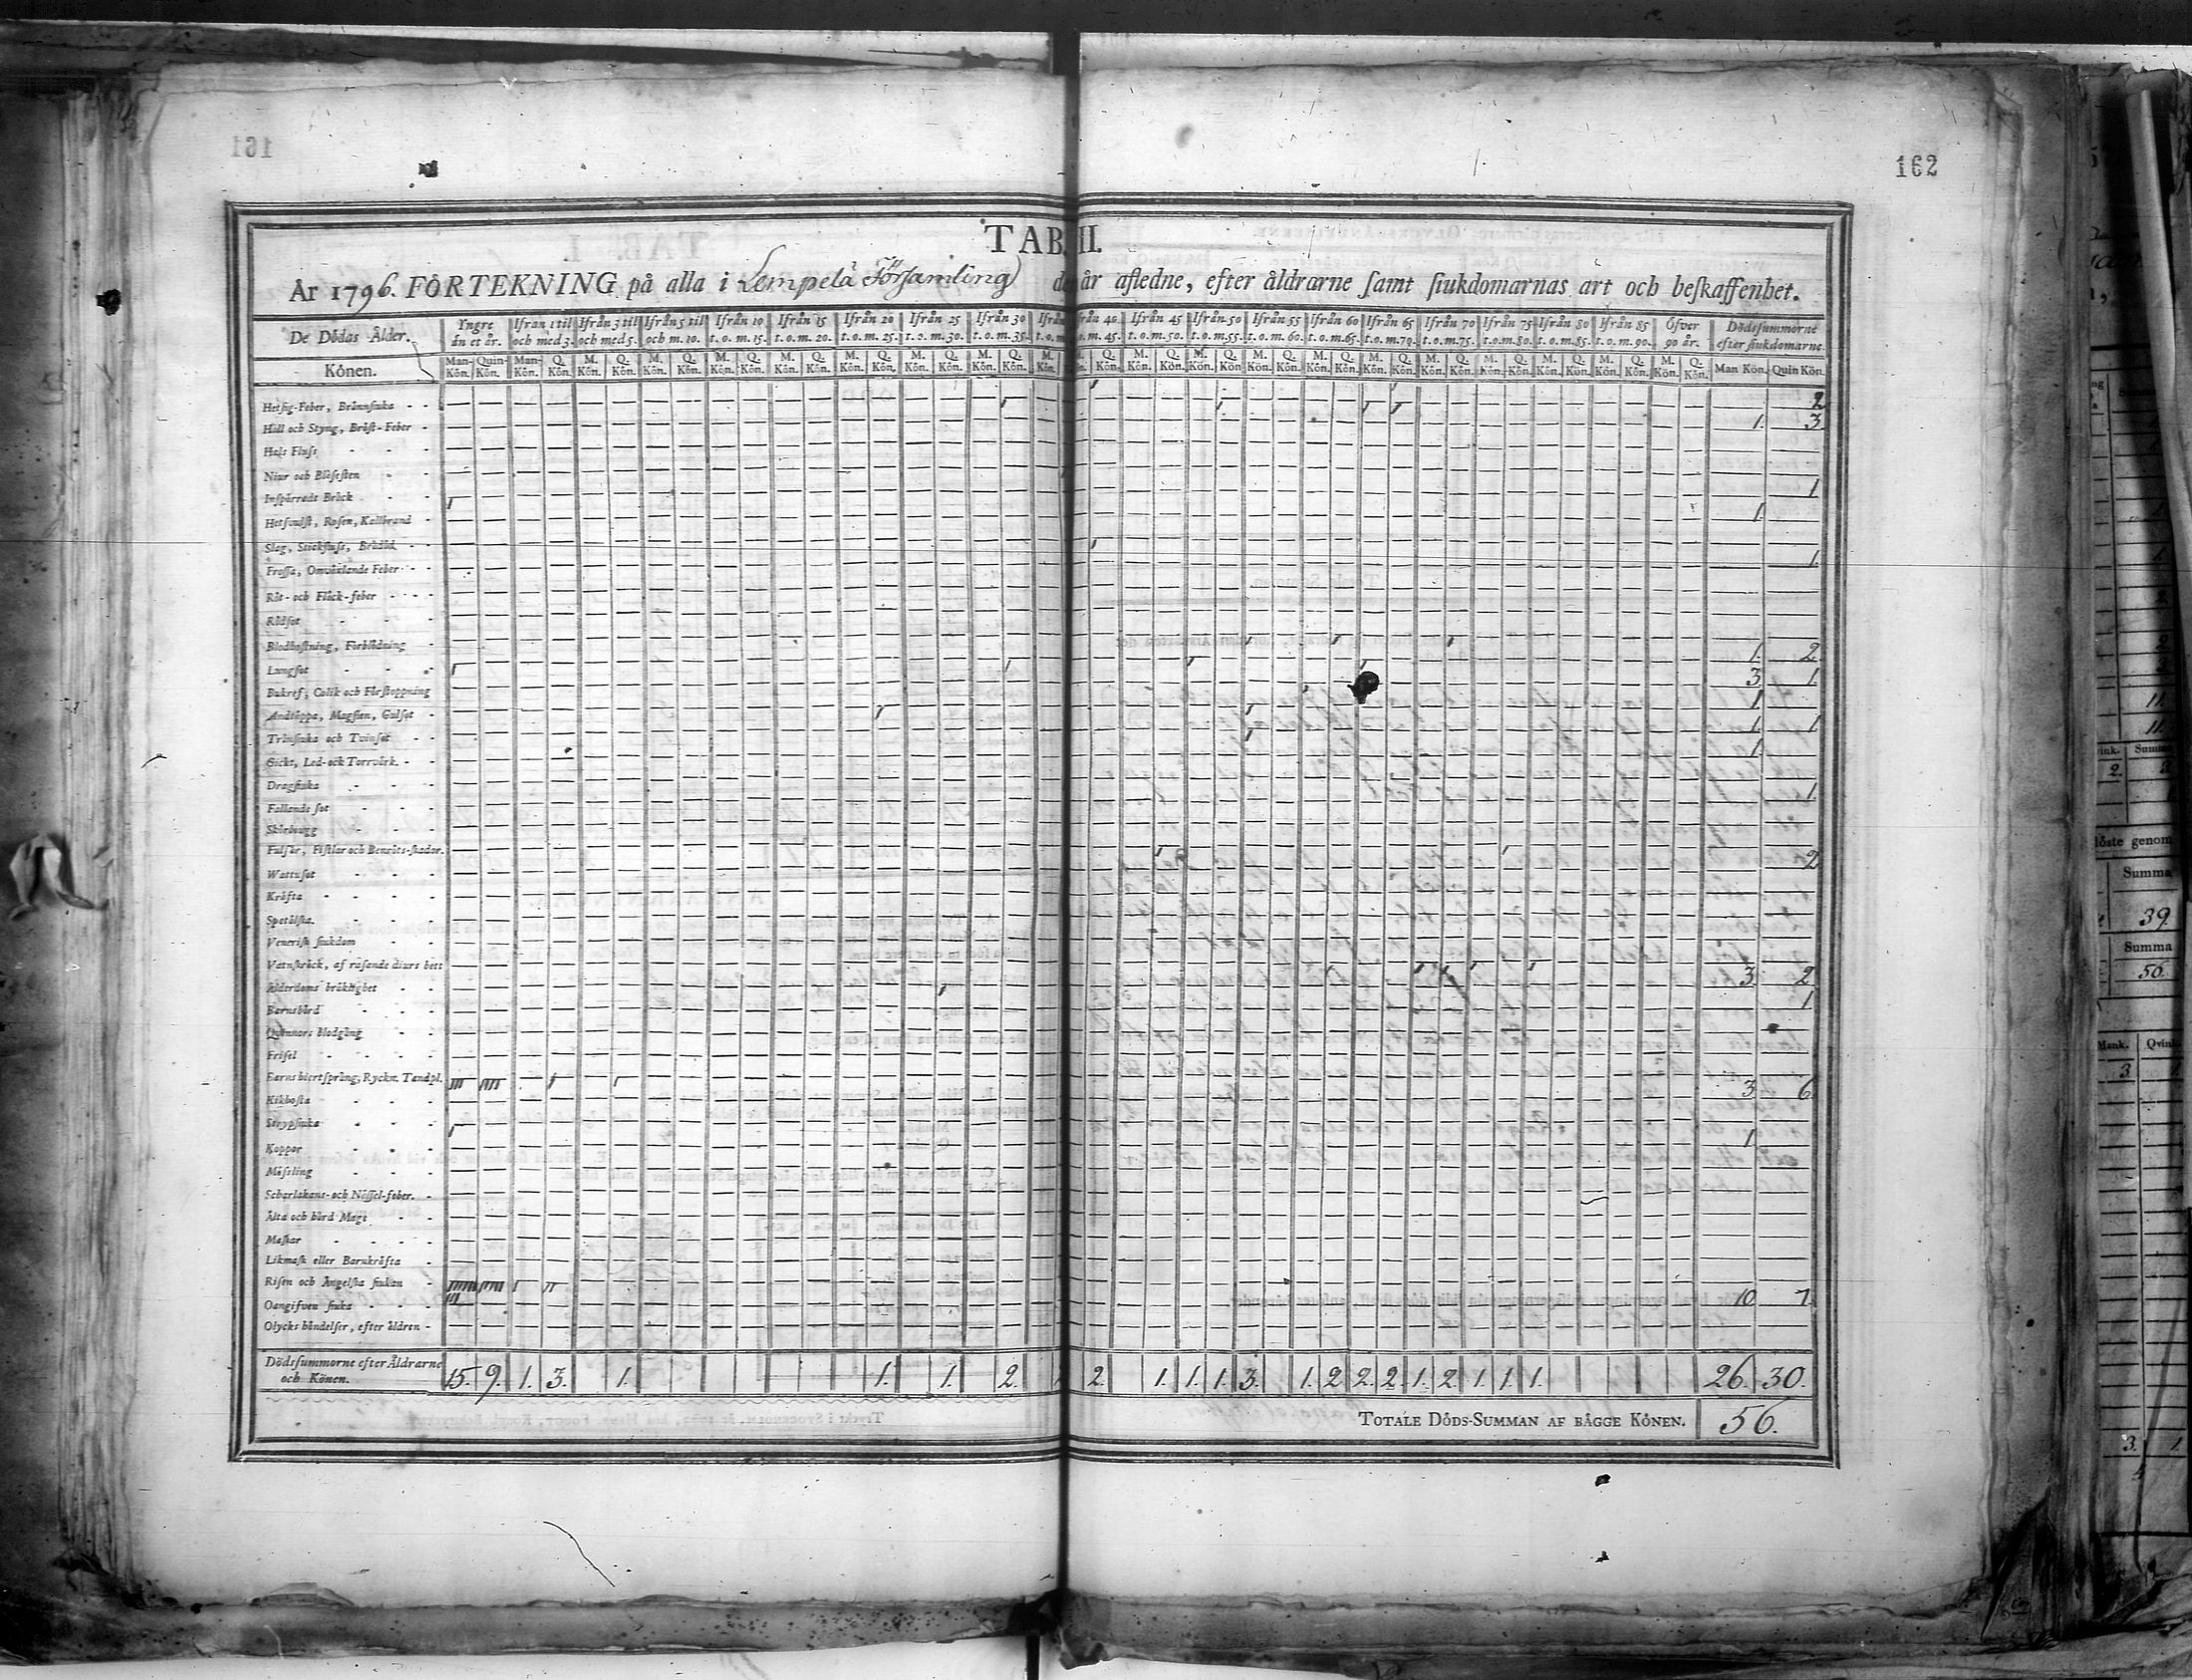 162
TAB. II.
År 1796. FÖRTEKNING på alla i Lempelä Församling det år afledne, efter åldrarne samt siukdomarnas art och beskaffenhet.
De Dödas Ålder. Yngre än et år. Ifrån 1 til och med 3. Ifrån 3 til och med 5. Ifrån 5 til och m. 10. Ifrån 10 t. o. m. 15. Ifrån 15 t. o. m. 20. Ifrån 20 t. o. m. 25. Ifrån 25 t. o. m. 30. Ifrån 30 t. o. m. 35. Ifrån 40. t. o. m. 45. Ifrån 45 t. o. m. 50. Ifrån 50 t. o. m. 55. Ifrån 55 t. o. m. 60. Ifrån 60 t. o. m. 65. Ifrån 65 t. o. m. 70. Ifrån 70 t. o. m. 75. Ifrån 75 t. o. m. 80. Ifrån 80 t. o. m. 85. Ifrån 85 t. o. m. 90. Öfver 90 år. Dödssummorne efter siukdomarne.
Könen. Man-Kön. Quin-Kön. Man-Kön. Q. Kön. M. Kön. Q. Kön. Man Kön. Quin Kön.
Hetsig-Feber, Brännsiuka 2
Håll och Styng, Bröst-Feber 1. 3
Hals Fluss
Niur och Blåsesten
Inspärradt Bråck 1
Hetsvulst, Rosen, Kallbrand 1
Slag, Stickfluss, Brådöd
Frossa, Omväxlande Feber 1.
Röt- och Fläck-feber
Rödsot
Blodhostning, Förblödning 1. 2
Lungsot 3 1.
Bukref, Colik och Förstoppning 1
Andtäppa, Magsien, Gulsot 1. 1
Tränsiuka och Tvinsot 1
Gickt, Led- och Torrvärk.
Dragsiuka 1.
Fallande sot
Skörbugg
Fulsår, Fistlar och Benröts-skador. 2
Wattusot
Kräfta
Spetälska.
Venerisk siukdom
Vatnskräck, af rasande diurs bett
Ålderdoms bräklighet 3 2
Barnsbörd 1
Quinnors blodgång
Frisel
Barns hiertsprång, Ryckn. Tandpl. 3 6
Kikhosta
Strypsiuka
Koppor 1
Mässling
Scharlakans- och Nässel-feber.
Älta och hård Mage
Maskar
Likmask eller Barnkräfta
Risen och Ängelska siukan
Oangifven siuka 10 7
Olycks händelser, efter åldren
Dödssummorne efter Åldrarne och Könen. 15. 9. 1. 3. 1. 1. 1. 2. 2. 1. 1. 1. 3. 1. 2 2. 2. 1. 2. 1. 1. 1. 26. 30.
TOTALE DÖDS-SUMMAN AF BÄGGE KÖNEN. 56.
11.
11.
Summa
39.
Summa
56.
Mank. Qvin
3
3. 1.